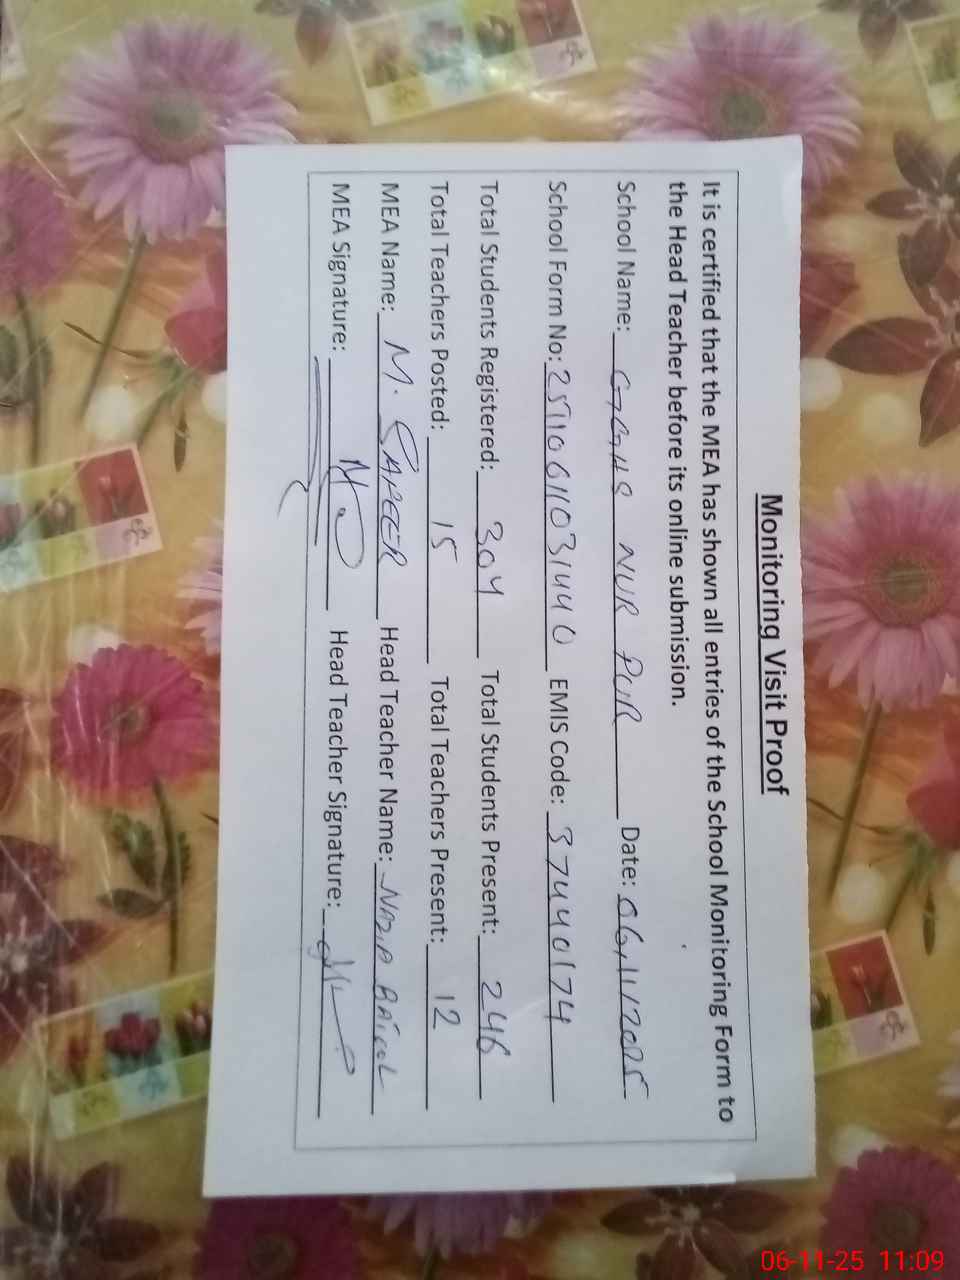 Monitoring Visit Proof
It is certified that the MEA has shown all entries of the School Monitoring Form to
the Head Teacher before its online submission.
School Name: GGHS NUR PUR Date: 06/11/2025
School Form No: 25110611031440 EMIS Code: 37440174
Total Students Registered: 304 Total Students Present: 246
Total Teachers Posted: 15 Total Teachers Present: 12
MEA Name: M. Head Teacher Name: NAZIA
MEA Signature: Head Teacher Signature:
06-11-25 11:09